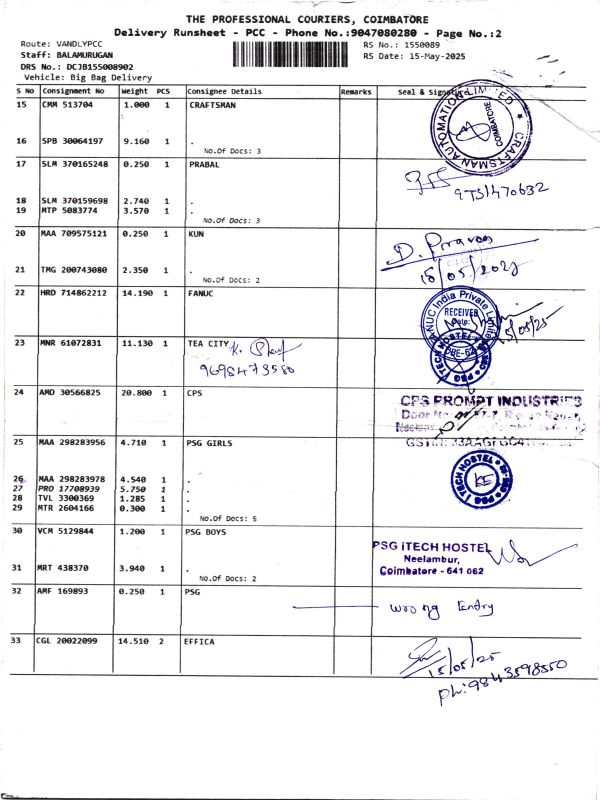 THE PROFESSIONAL COURIERS, COIMBATORE
Delivery Runsheet - PCC - Phone No.:9047080280 - Page No.:2
Route: VANDLYPCC
RS No.: 1550089
Staff: BALAMURUGAN
RS Date: 15-May-2025
DRS No.: DCJB155008902
Vehicle: Big Bag Delivery
S No Consignment No Weight PCS Consignee Details Remarks Seal & Signature
15 CMM 513704 1.000 1 CRAFTSMAN
CRAFTSMAN AUTOMATION LIMITED
COIMBATORE
16 SPB 30064197 9.160 1 .
No.Of Docs: 3
17 SLM 370165248 0.250 1 PRABAL
9751470632
18 SLM 370159698 2.740 1 .
19 MTP 5083774 3.570 1 .
No.Of Docs: 3
20 MAA 709575121 0.250 1 KUN
D. Praveen
21 TMG 200743080 2.350 1 .
No.Of Docs: 2
22 HRD 714862212 14.190 1 FANUC
FANUC India Private Limited
RECEIVED
Date:
15/05/25
23 MNR 61072831 11.130 1 TEA CITY
9698473580
PSG iTECH HOSTEL
24 AMD 30566825 20.800 1 CPS
CPS PROMPT INDUSTRIES
Door No.
25 MAA 298283956 4.710 1 PSG GIRLS
PSG iTECH HOSTEL
26 MAA 298283978 4.540 1 .
27 PRO 17708939 5.750 1 .
28 TVL 3300369 1.285 1 .
29 MTR 2604166 0.300 1 .
No.Of Docs: 5
30 VCM 5129844 1.200 1 PSG BOYS
PSG iTECH HOSTEL
Neelambur,
Coimbatore - 641 062
31 MRT 438370 3.940 1 .
No.Of Docs: 2
32 AMF 169893 0.250 1 PSG
wrong Entry
33 CGL 20022099 14.510 2 EFFICA
15/05/25
Ph: 9843598350